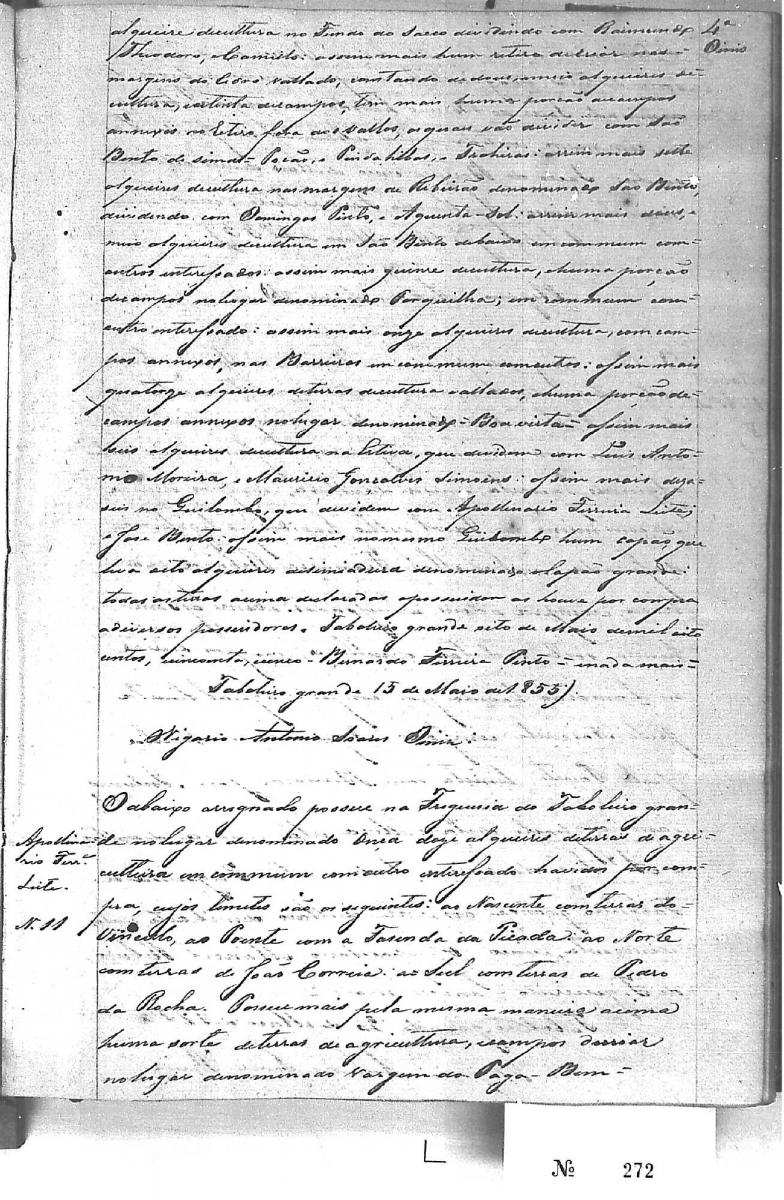 alqueire de cultura no Fundo do Sacco dividindo com Raimundo
Theodoro, e Camillo: assim mais hum retiro de criar nas
margens do Corrº vallado, constando de dous, e meio alqueires de
cultura, e de campos, tem mais huma porção de campos
annexos no Retiro fora dos vallos, os quais vão dividir com São
Bento de sima - Poção, e Pindahibas, e Trahiras: assim mais sette
alqueires de cultura nas margens do Ribeirão denominado São Bento,
dividindo com Domingos Pinto, e Aquenta-Sol: assim mais dous, e
meio alqueires de cultura em São Bento debaixo em commum com
outros interessados: assim mais quinze de cultura, e huma porção
de campos no lugar denominado Forquilha; em commum com
outro interessado: assim mais onze alqueires de cultura, com cam-
pos annexos, nas Barreiras em commum com outros: assim mais
quatorze alqueires de terras de cultura vallados, e huma porção de
campos annexos no lugar denominado - Boa vista - assim mais
seis alqueires de cultura na Estiva, que dividem com Luis Anto-
nio Moreira, e Mauricio Gonçalves Simoens: assim mais deza-
seis no Guilombo, que dividem com Apollinario Ferreira Leite,
e José Bento: assim mais no mesmo Guilombo hum capão, que
leva oito alqueires de simiadura denominado o Capão grande:
todas as terras acima declaradas o possuidor as houve por compra
a diversos possuidores. Taboleiro grande oito de Maio de mil oito
centos, e cincoenta, e cinco - Bernardo Ferreira Pinto - e nada mais -
Taboleiro grande 15 de Maio de 1855).
Vigario Antonio Soares Diniz.
4ª
Diniz
Apollina-
rio Ferrª
Leite.
N. 11
O abaixo assignado possue na Freguesia do Taboleiro gran-
de no lugar denominado Onça doze alqueires de terras de agri-
cultura em commum com outro interessado havidos por com-
pra, cujos limites são os seguintes: ao Nascente com terras do
Vinculo, ao Poente com a Fasenda da Picada: ao Norte
com terras de João Correia: ao Sul com terras de Pedro
da Rocha. Possue mais pela mesma maneira acima
huma sorte de terras de agricultura, e campos de criar
no lugar denominado Vargem do Paga-Bem -
Nº 272